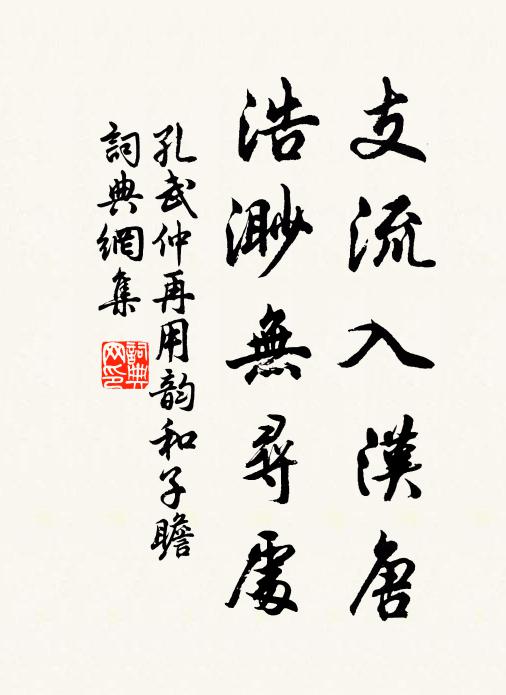 支流入漢唐
浩渺無尋處
孔武仲再用韵和子瞻
詞典網集
詞典网印